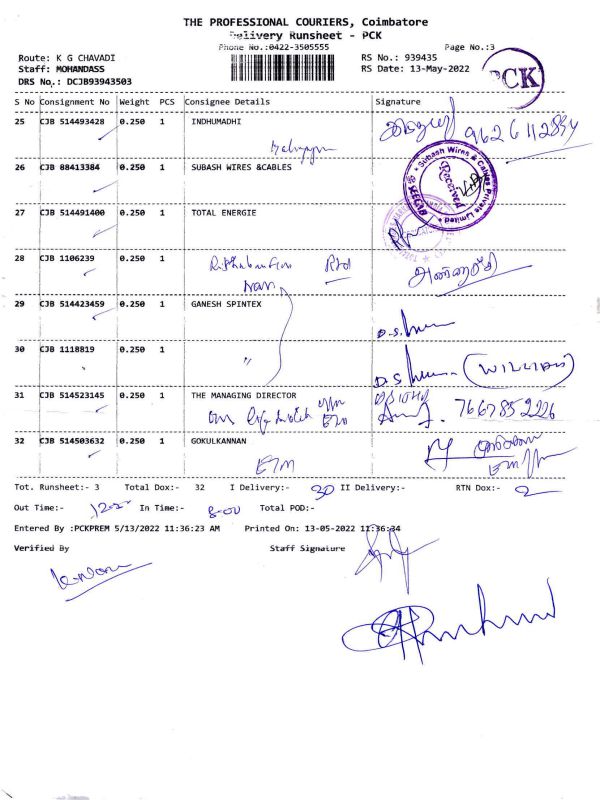 THE PROFESSIONAL COURIERS, Coimbatore
Delivery Runsheet - PCK
Phone No.:0422-3505555 Page No.:3
Route: K G CHAVADI RS No.: 939435
Staff: MOHANDASS RS Date: 13-May-2022
DRS No.: DCJB93943503
PCK
S No Consignment No Weight PCS Consignee Details Signature
25 CJB 514493428 0.250 1 INDHUMADHI
9626112834
26 CJB 88413384 0.250 1 SUBASH WIRES &CABLES
Subash Wires & Cables Private Limited
Received
27 CJB 514491400 0.250 1 TOTAL ENERGIE
28 CJB 1106239 0.250 1
29 CJB 514423459 0.250 1 GANESH SPINTEX
D.S
30 CJB 1118819 0.250 1 "
D.S (WILLIAM)
31 CJB 514523145 0.250 1 THE MANAGING DIRECTOR
7667852226
32 CJB 514503632 0.250 1 GOKULKANNAN
ETM
Tot. Runsheet:- 3 Total Dox:- 32 I Delivery:- 30 II Delivery:- RTN Dox:- 2
Out Time:- In Time:- 8-00 Total POD:-
Entered By :PCKPREM 5/13/2022 11:36:23 AM Printed On: 13-05-2022 11:36:34
Verified By Staff Signature